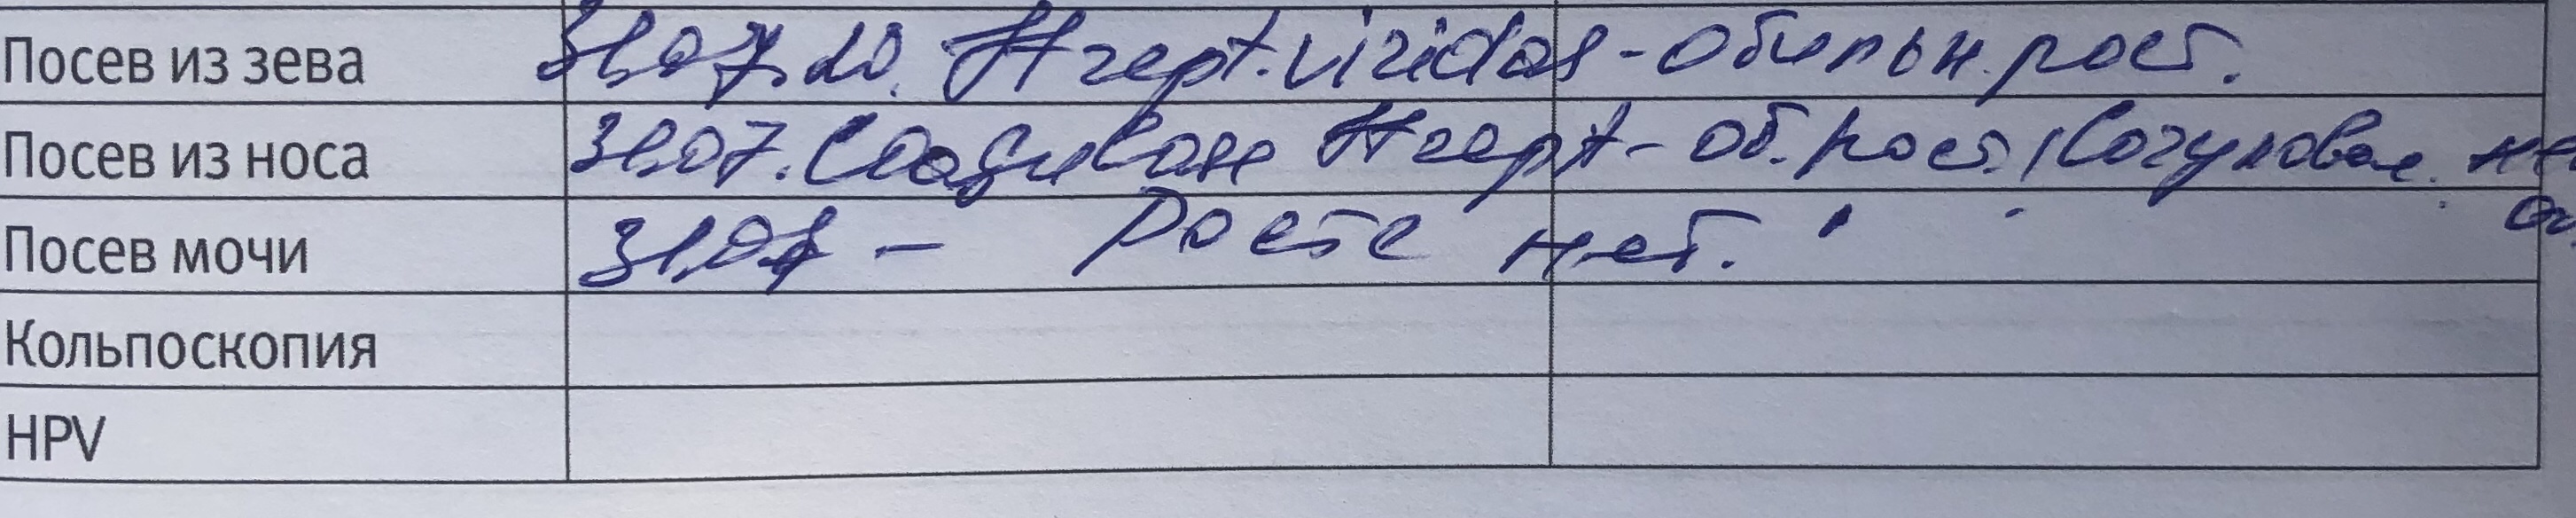 Посев из зева 31.07.20. Strept. viridas - обильн. рост.
Посев из носа 31.07. Coagulase Strept - об. рост (Коагуловое. не
Посев мочи 31.07 - Роста нет.
Кольпоскопия
HPV